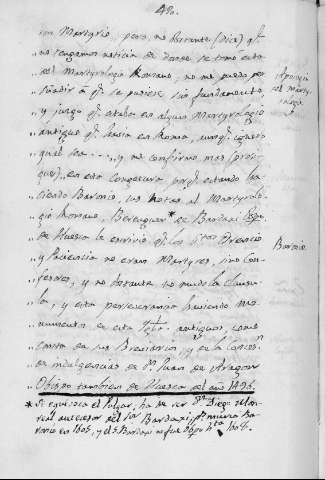 480.
ion Martyrio, pero no obstante (dice) qe.
„ no tengamos noticia de donde se tomó esto
„ el Martyrologio Romano, no me puedo per
„ suadir á qe. se pusiese sin fundamento,
„ y juzgo qe. estaba en algun Martyrologio
„ antiguo qe. havia en Roma, aunqe.
„ qual sea ...., y me confirmo mas (prosi
„ gue) en esta Congetura, porqe. estando ha
„ ciendo Baronio, las Notas al Martyrolo
„ gio Romano, Berenguer * de Bardaxi Obpo.
„ de Huesca le escrivió qe. los Stos. Orencio
„ y Paciencia no eran Martyres, sino Con
„ fesores, y no obstante no mudó la Clausu
„ la, y esta perseverancia haviendo mo
„ numentos en esta Ygla. antiguos, como
„ consta de sus Breviarios, y de la Conces.n
„ de indulgencias de Dn. Juan de Aragon
„ Obispo tambien de Huesca del año 1495.
* Si equivoca el Vulgar, ha de ser Dn. Diego
antecesor del Sor. Bardaxi, pues murió Ba
ronio en 1607, y el Sr. Bardaxi no fue Obpo hta. 1608.
Apologia
del Marty-
rologio
Baronio